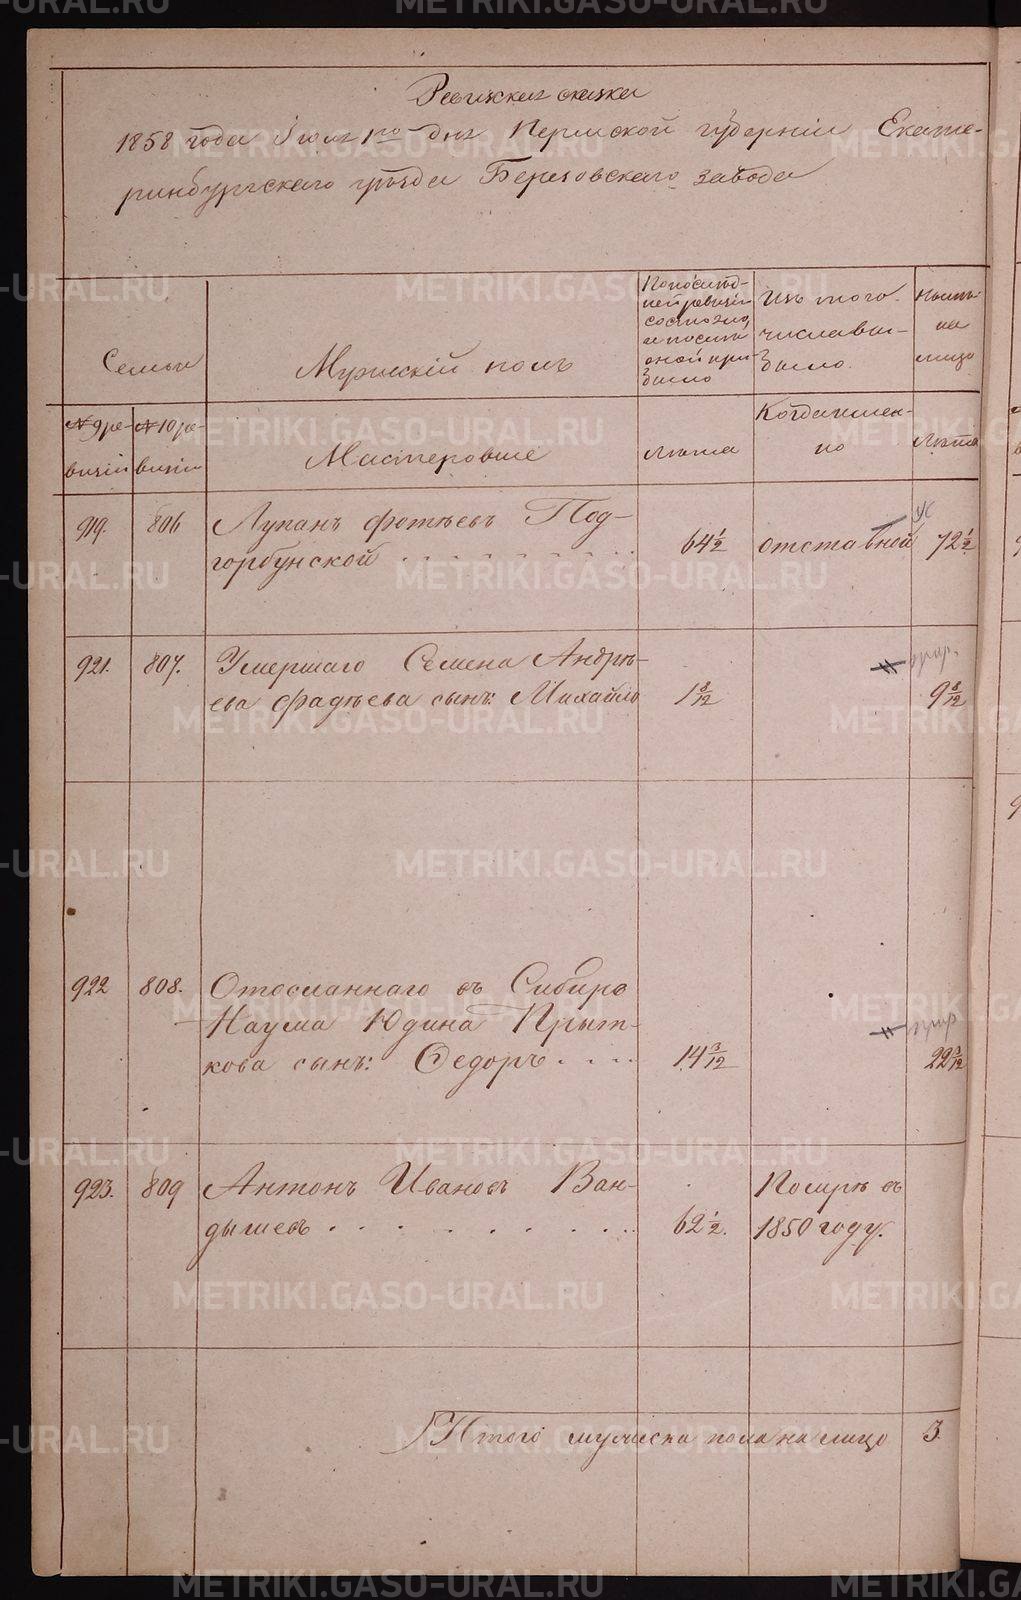 Ревизская сказка
1858 года Июля 1го дня Пермской губерніи Екате-
ринбургскаго уѣзда Березовскаго завода
Семьи
Мужскій полъ
По послѣд-
ней ревизіи
состояло,
и послѣ
оной при-
было
Изъ того
числа вы-
было.
Нынѣ
на
лицо
№ 9 ре-
визіи
№ 10 ре-
визіи
Мастеровые
лѣта
Когда имен-
но
Лѣта
919. 806 Лупанъ Фотѣевъ Под-
горбунской 64½ отставной 72½
921. 807. Умершаго Семена Андрѣ-
ева Фадѣева сынъ: Михайло 1 8/12 9 8/12
922 808. Отосланнаго въ Сибирь
Наума Юдина Прыт-
кова сынъ: Федоръ 14 3/12 22 3/12
923. 809 Антонъ Ивановъ Ван- Помре въ
дышевъ 62½. 1850 году.
Итого мужеска пола на лицо 3
METRIKI.GASO-URAL.RU